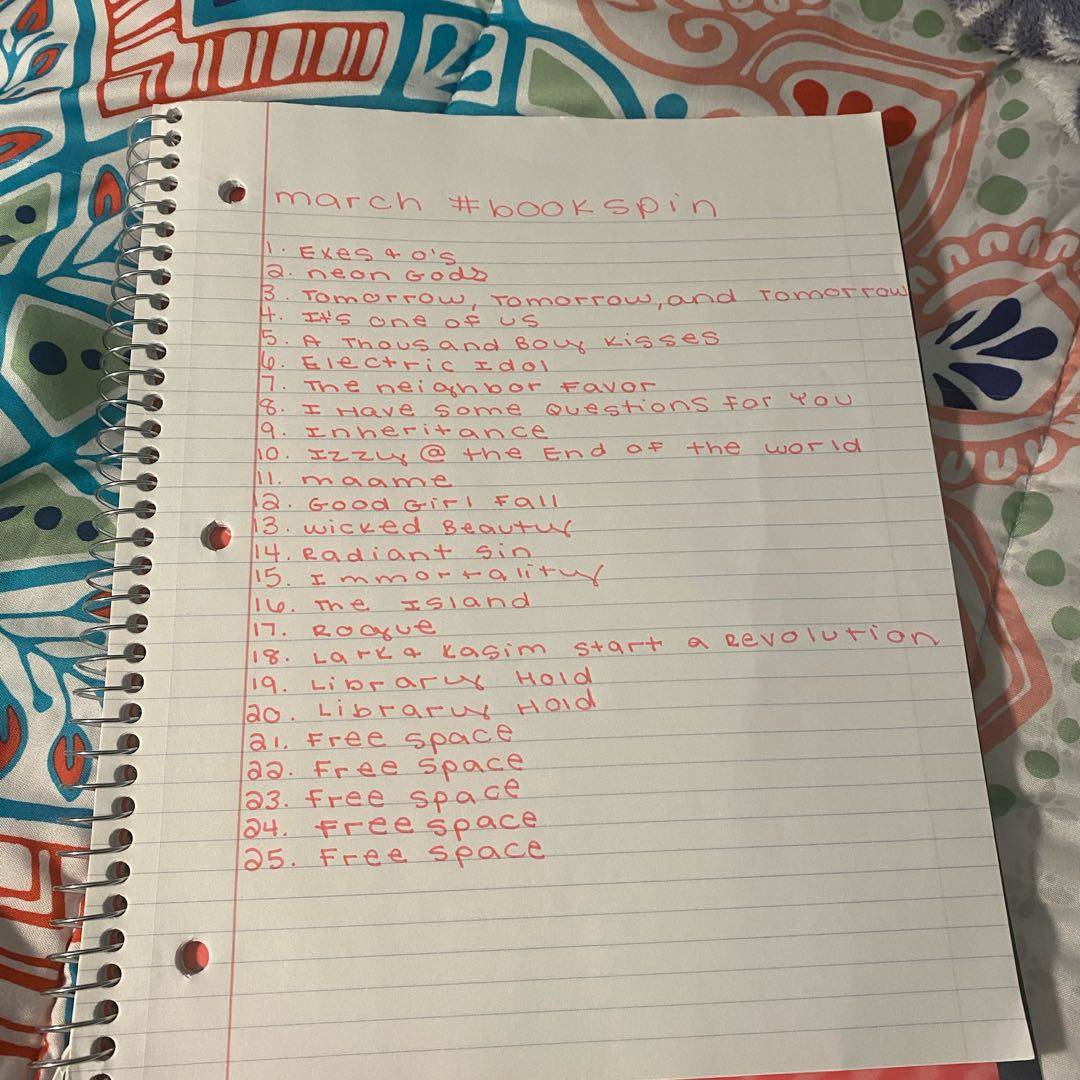 march #bookspin
1. Exes & O's
2. Neon Gods
3. Tomorrow, Tomorrow, and Tomorrow
4. It's One of Us
5. A Thousand Boy Kisses
6. Electric Idol
7. The Neighbor Favor
8. I Have Some Questions for You
9. Inheritance
10. Izzy @ the End of the World
11. Maame
12. Good Girl Fall
13. Wicked Beauty
14. Radiant Sin
15. Immortality
16. The Island
17. Rogue
18. Lark & Kasim Start a Revolution
19. Library Hold
20. Library Hold
21. Free Space
22. Free Space
23. Free Space
24. Free Space
25. Free Space